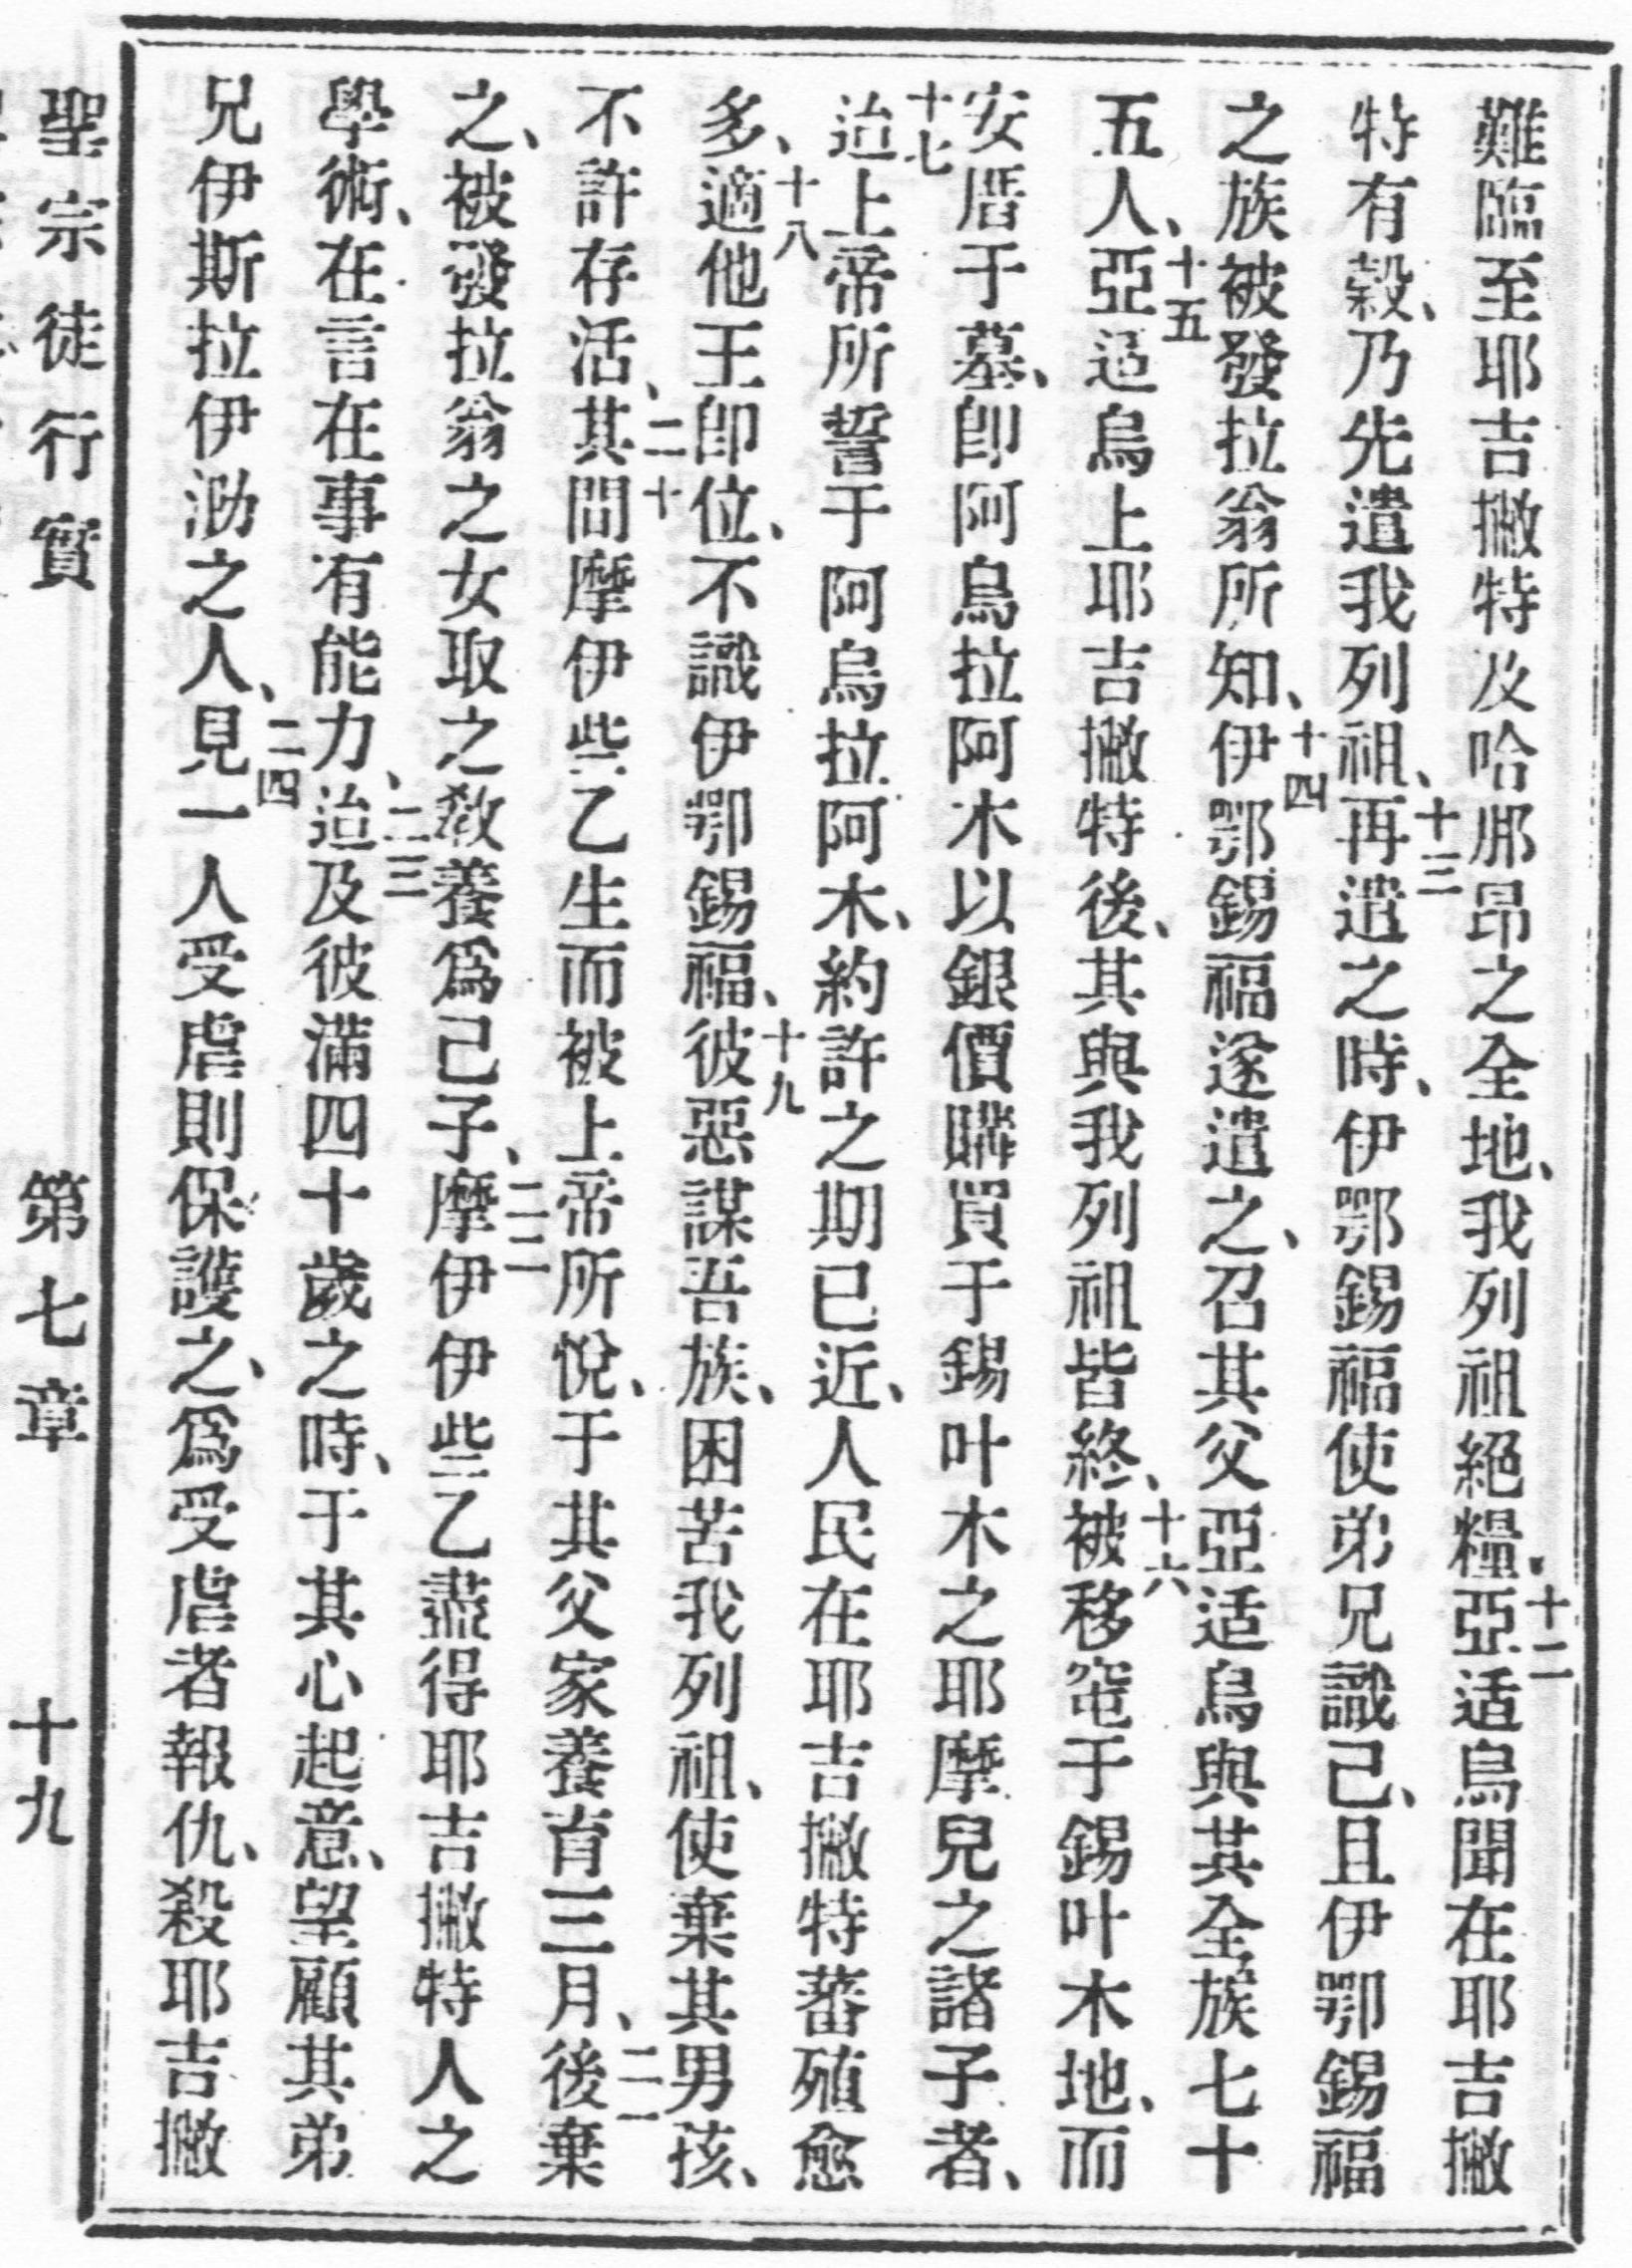 難臨至耶吉撇特及哈那昂之全地、我列祖絕糧、十二亞适烏聞在耶吉撇
特有穀、乃先遣我列祖、十三再遣之時、伊鄂錫福使弟兄識己、且伊鄂錫福
之族被發拉翁所知、十四伊鄂錫福遂遣之、召其父亞适烏與其全族七十
五人、十五亞适烏上耶吉撇特後、其與我列祖皆終、十六被移窀于錫叶木地、而
安厝于墓、卽阿烏拉阿木以銀價購買于錫叶木之耶摩兒之諸子者、
十七迨上帝所誓于阿烏拉阿木、約許之期已近、人民在耶吉撇特蕃殖愈
多、十八適他王卽位、不識伊鄂錫福、十九彼惡謀吾族、困苦我列祖、使棄其男孩、
不許存活、二十其間摩伊些乙生而被上帝所悅、于其父家養育三月、二一後棄
之、被發拉翁之女取之敎養爲己子、二二摩伊伊些乙盡得耶吉撇特人之
學術、在言在事有能力、二三迨及彼滿四十歲之時、于其心起意、望顧其弟
兄伊斯拉伊泐之人、二四見一人受虐則保護之、爲受虐者報仇、殺耶吉撇
聖宗徒行實 第七章 十九